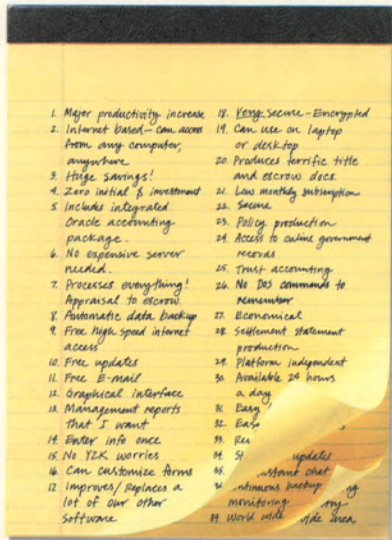 1. Major productivity increase
2. Internet based - can access
from any computer,
anywhere
3. Huge savings!
4. Zero initial $ investment
5. Includes integrated
Oracle accounting
package.
6. No expensive server
needed.
7. Processes everything!
Appraisal to escrow.
8. Automatic data backup
9. Free high speed internet
access
10. Free updates
11. Free E-mail
12. Graphical interface
13. Management reports
that I want
14. Enter info once
15. No Y2K worries
16. Can customize forms
17. Improves/Replaces a
lot of our other
software
18. Very secure - Encrypted
19. Can use on laptop
or desktop
20. Produces terrific title
and escrow docs.
21. Low monthly subscription
22. Secure
23. Policy production
24. Access to online government
records
25. Trust accounting
26. No DOS commands to
remember
27. Economical
28. Settlement statement
production
29. Platform independent
30. Available 24 hours
a day
31. Easy
32.
33.
34. updates
35. chat
36. backup
monitoring
37. World wide area